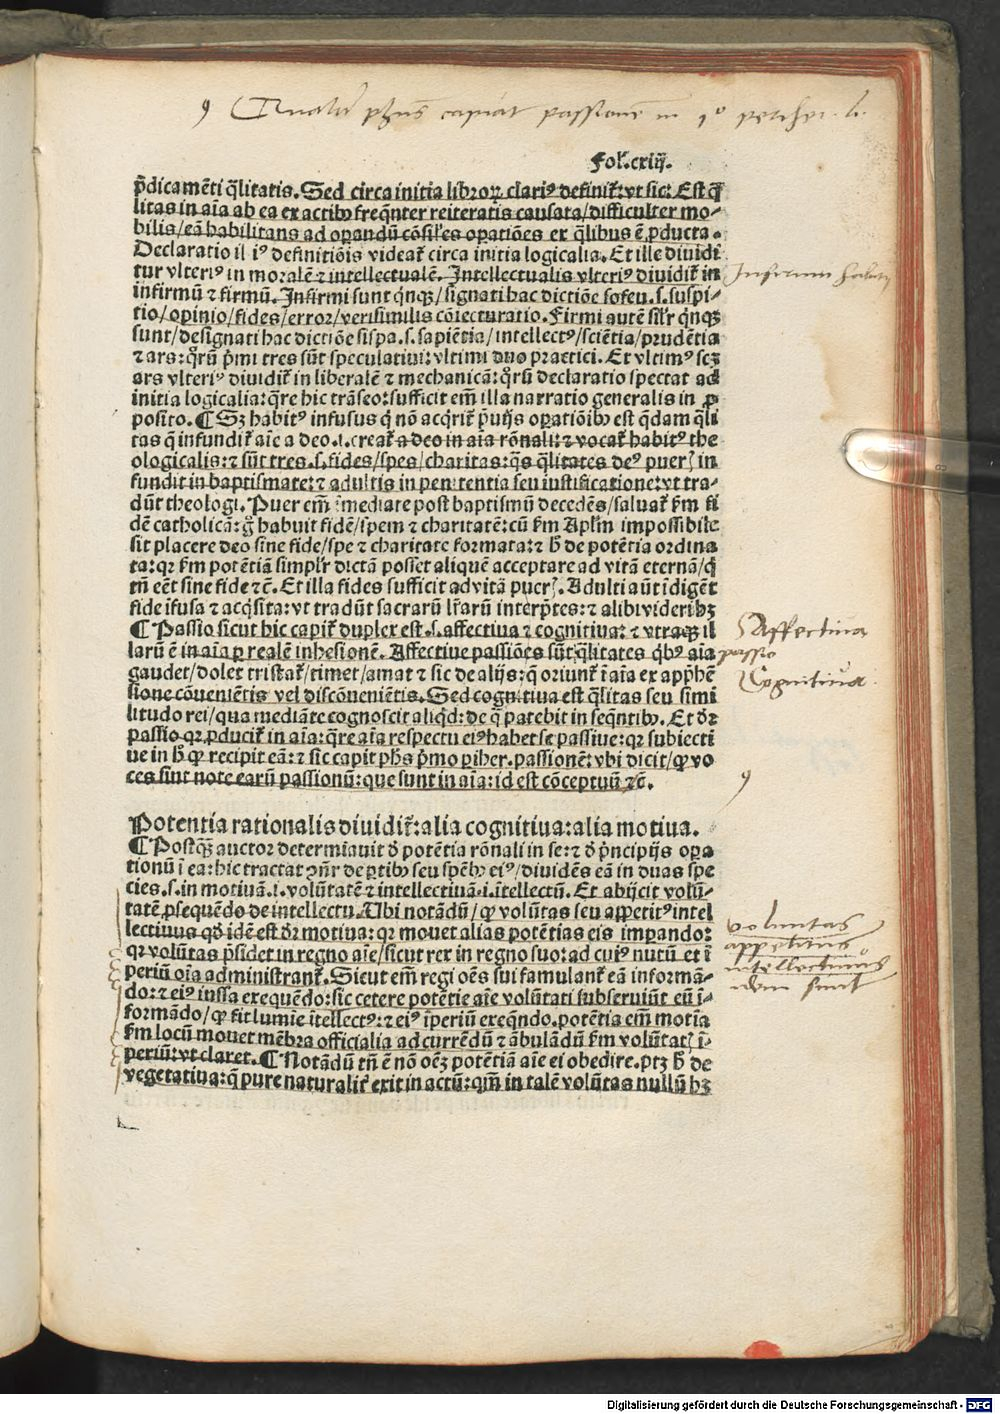 Qualiter phūs capiat passionē in 1º periher. li.
Fol̄.cxiij.
p̄dicamēti q̄litatis. Sed circa initia libroꝝ clariꝰ definit̄: vt sic: Est q̄
litas in aīa ab ea ex actibꝰ freq̄nter reiteratis causata/difficulter mo⸗
bilis/eā habilitans ad opandū cōsiles opatiōes ex q̄libus ē ꝓducta.
Declaratio illiꝰ definitiōis videat̄ circa initia logicalia. Et ille diuidi
tur vlteriꝰ in moralē ⁊ intellectualē. Intellectualis vlteriꝰ diuidit̄ in
infirmū ⁊ firmū. Infirmi sunt q̄nqꝫ/signati hac dictiōe sofeu.s.suspi⸗
tio/opinio/fides/error/verisimilis cōiecturatio. Firmi autē silr̄ q̄nqꝫ
sunt/designati hac dictiōe sispa.s.sapiētia/intellectꝰ/sciētia/prudētia
⁊ ars: qr̄ū p̄mi tres sūt speculatiui: vltimi duo practici. Et vltimꝰ scꝫ
ars vlteriꝰ diuidit̄ in liberalē ⁊ mechanicā: qr̄ū declaratio spectat ad
initia logicalia: q̄re hic trāseo: sufficit em̄ illa narratio generalis in ꝓ
posito. ¶ Sꝫ habitꝰ infusus q̄ nō acq̄rit̄ p̄uijs opatiōibꝰ est q̄dam q̄li
tas q̄ infundit̄ aīe a deo.i.creat̄ a deo in aīa rōnali: ⁊ vocat̄ habitꝰ the
ologicalis: ⁊ sūt tres.s.fides/spes/charitas: q̄s q̄litates deꝰ pueris in
fundit in baptismate: ⁊ adultis in penitentia seu iustificatione: vt tra⸗
dūt theologi. Puer em̄ īmediate post baptismū decedēs/saluat̄ fm̄ fi
dē catholicā: g̊ habuit fidē/spem ⁊ charitatē: cū fm̄ Aplm̄ impossibile
sit placere deo sine fide/spe ⁊ charitate formata: ⁊ h̄ de potētia ordina
ta: qꝛ fm̄ potētiā simplr̄ dictā posset aliquē acceptare ad vitā eternā/q̄
tn̄ eēt sine fide ⁊c̄. Et illa fides sufficit ad vitā pueri. Adulti aūt īdigēt
fide ifusa ⁊ acq̄sita: vt tradūt sacrarū lr̄arū interp̄tes: ⁊ alibi videribꝫ
¶ Passio sicut hic capit̄ duplex est.s.affectiua ⁊ cognitiua: ⁊ vtraqꝫ il
larū ē in aīa ꝑ realē inhesionē. Affectiue passiōes sūt q̄litates q̄bꝰ aīa
gaudet/dolet tristat̄/timet/amat ⁊ sic de alijs: q̄ oriunt̄ ī aīa ex apphē
sione cōuenientis vel discōuenientis. Sed cognitiua est q̄litas seu simi
litudo rei/qua mediāte cognoscit aliqd̄: de q̄ patebit in seq̄ntibꝰ. Et dꝛ
passio qꝛ ꝓducit̄ in aīa: q̄re aīa respectu eiꝰ habet se passiue: qꝛ subiecti
ue in h̄ ꝙ recipit eā: ⁊ sic capit phs p̄mo piher. passionē: vbi dicit/ꝙ vo
ces sint note earū passionū: que sunt in aīa: id est cōceptuū ⁊c̄.
Potentia rationalis diuidit̄: alia cognitiua: alia motiua.
¶ Postq̄ꝫ auctor determiauit d̄ potētia rōnali in se: ⁊ d̄ p̄ncipijs opa
tionū ī ea: hic tractat ɔn̄r de ptibꝰ seu spēbꝰ eiꝰ/diuidēs eā in duas spe
cies.s.in motiuā.i.volūtatē ⁊ intellectiuā.i.ītellectū. Et abijcit volū⸗
tatē ꝓsequēdo de intellectu. Ubi notādū/ꝙ volūtas seu appetitꝰ intel
lectiuus qd̄ idē est dꝛ motiua: qꝛ mouet alias potētias eis imperando:
qꝛ volūtas p̄sidet in regno aīe/sicut rex in regno suo: ad cuiꝰ nutū et ī
periū oīa administrant̄. Sicut em̄ regi oēs sui famulant̄ eā informā⸗
do: ⁊ eiꝰ iussa exequēdo: sic cetere potētie aīe volūtati subseruiūt eū ī⸗
formādo/ꝙ fit lumie ītellectꝰ: ⁊ eiꝰ īperiū exeq̄ndo. potētia em̄ motīa
fm̄ locū mouet mēbra officialia ad currēdū ⁊ ābulādū fm̄ volūtatis ī⸗
periū: vt claret. ¶ Notādū tn̄ ē nō oēꝫ potētiā aīe ei obedire. ptꝫ h̄ de
vegetatiua: q̄ pure naturalit̄ exit in actū: qm̄ in talē volūtas nullū hꝫ
Infirmi habitꝰ
Affectiua
passio
Cognitiua.
voluntas
appetitus
intellectiuus
idem sunt
Digitalisierung gefördert durch die Deutsche Forschungsgemeinschaft - DFG